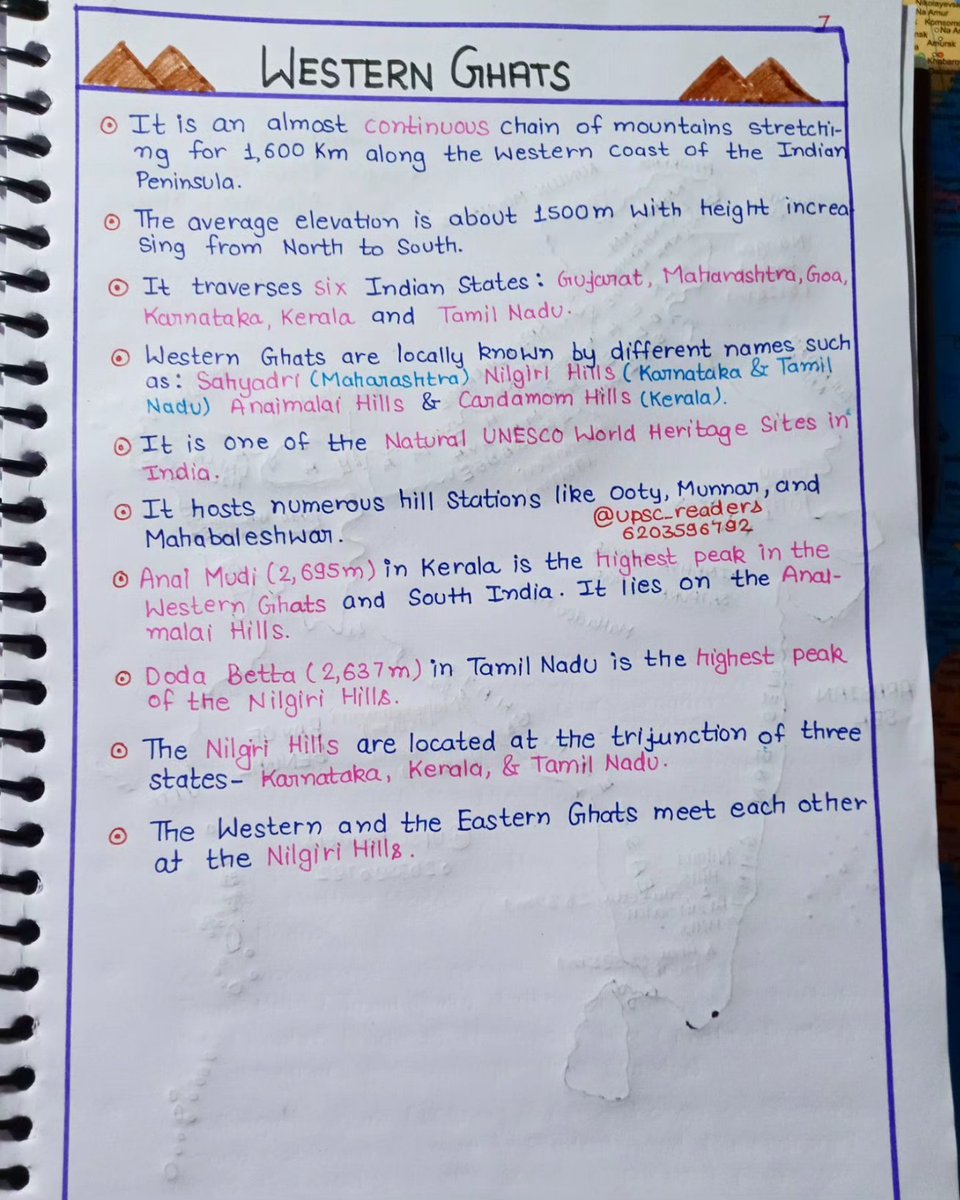 7
WESTERN GHATS
It is an almost continuous chain of mountains stretchi-
ng for 1,600 Km along the Western coast of the Indian
Peninsula.
The average elevation is about 1500m with height increa
sing from North to South.
It traverses six Indian States: Gujarat, Maharashtra, Goa,
Karnataka, Kerala and Tamil Nadu.
Western Ghats are locally known by different names such
as: Sahyadri (Maharashtra) Nilgiri Hills (Karnataka & Tamil
Nadu) Anaimalai Hills & Cardamom Hills (Kerala).
It is one of the Natural UNESCO World Heritage Sites in
India.
It hosts numerous hill Stations like Ooty, Munnar, and
Mahabaleshwar.
@upsc_readers
6203596792
Anai Mudi (2,695m) in Kerala is the highest peak in the
Western Ghats and South India. It lies on the Anai-
malai Hills.
Doda Betta (2,637m) in Tamil Nadu is the highest peak
of the Nilgiri Hills.
The Nilgiri Hills are located at the trijunction of three
states- Karnataka, Kerala, & Tamil Nadu.
The Western and the Eastern Ghats meet each other
at the Nilgiri Hills.